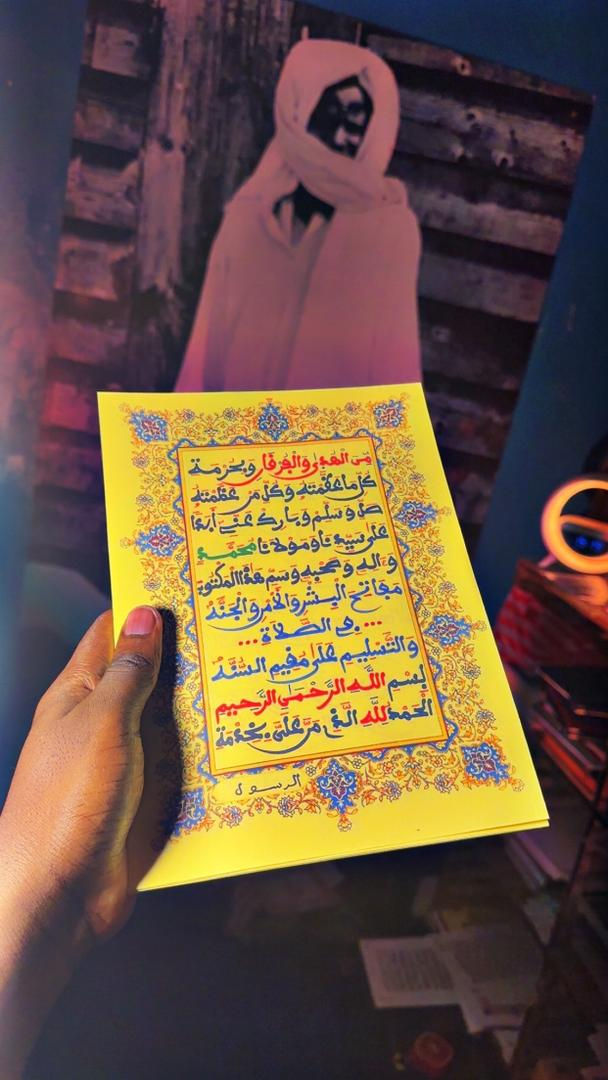 مِنَ الْهُدَى وَالْفُرْقَانِ وَبِحُرْمَةِ
كُلِّ مَا عَظَّمْتَهُ وَكُلِّ مَنْ عَظَّمْتَهُ
صَلِّ وَسَلِّمْ وَبَارِكْ عَنِّي أَبَدًا
عَلَى سَيِّدِنَا وَمَوْلَانَا مُحَمَّدٍ
وَءَالِهِ وَصَحْبِهِ وَسَمِّ هَذَا الْمَكْتُوبَ
مَفَاتِحَ الْبِشْرِ وَالْأَمْرِ وَالْجَنَّهْ
... فِي الصَّلَاةِ ...
وَالتَّسْلِيمِ عَلَى مُقِيمِ السُّنَّهْ
بِسْمِ اللَّهِ الرَّحْمَنِ الرَّحِيمِ
الْحَمْدُ لِلَّهِ الَّذِي مَنَّ عَلَيَّ بِخِدْمَةِ
الرسول